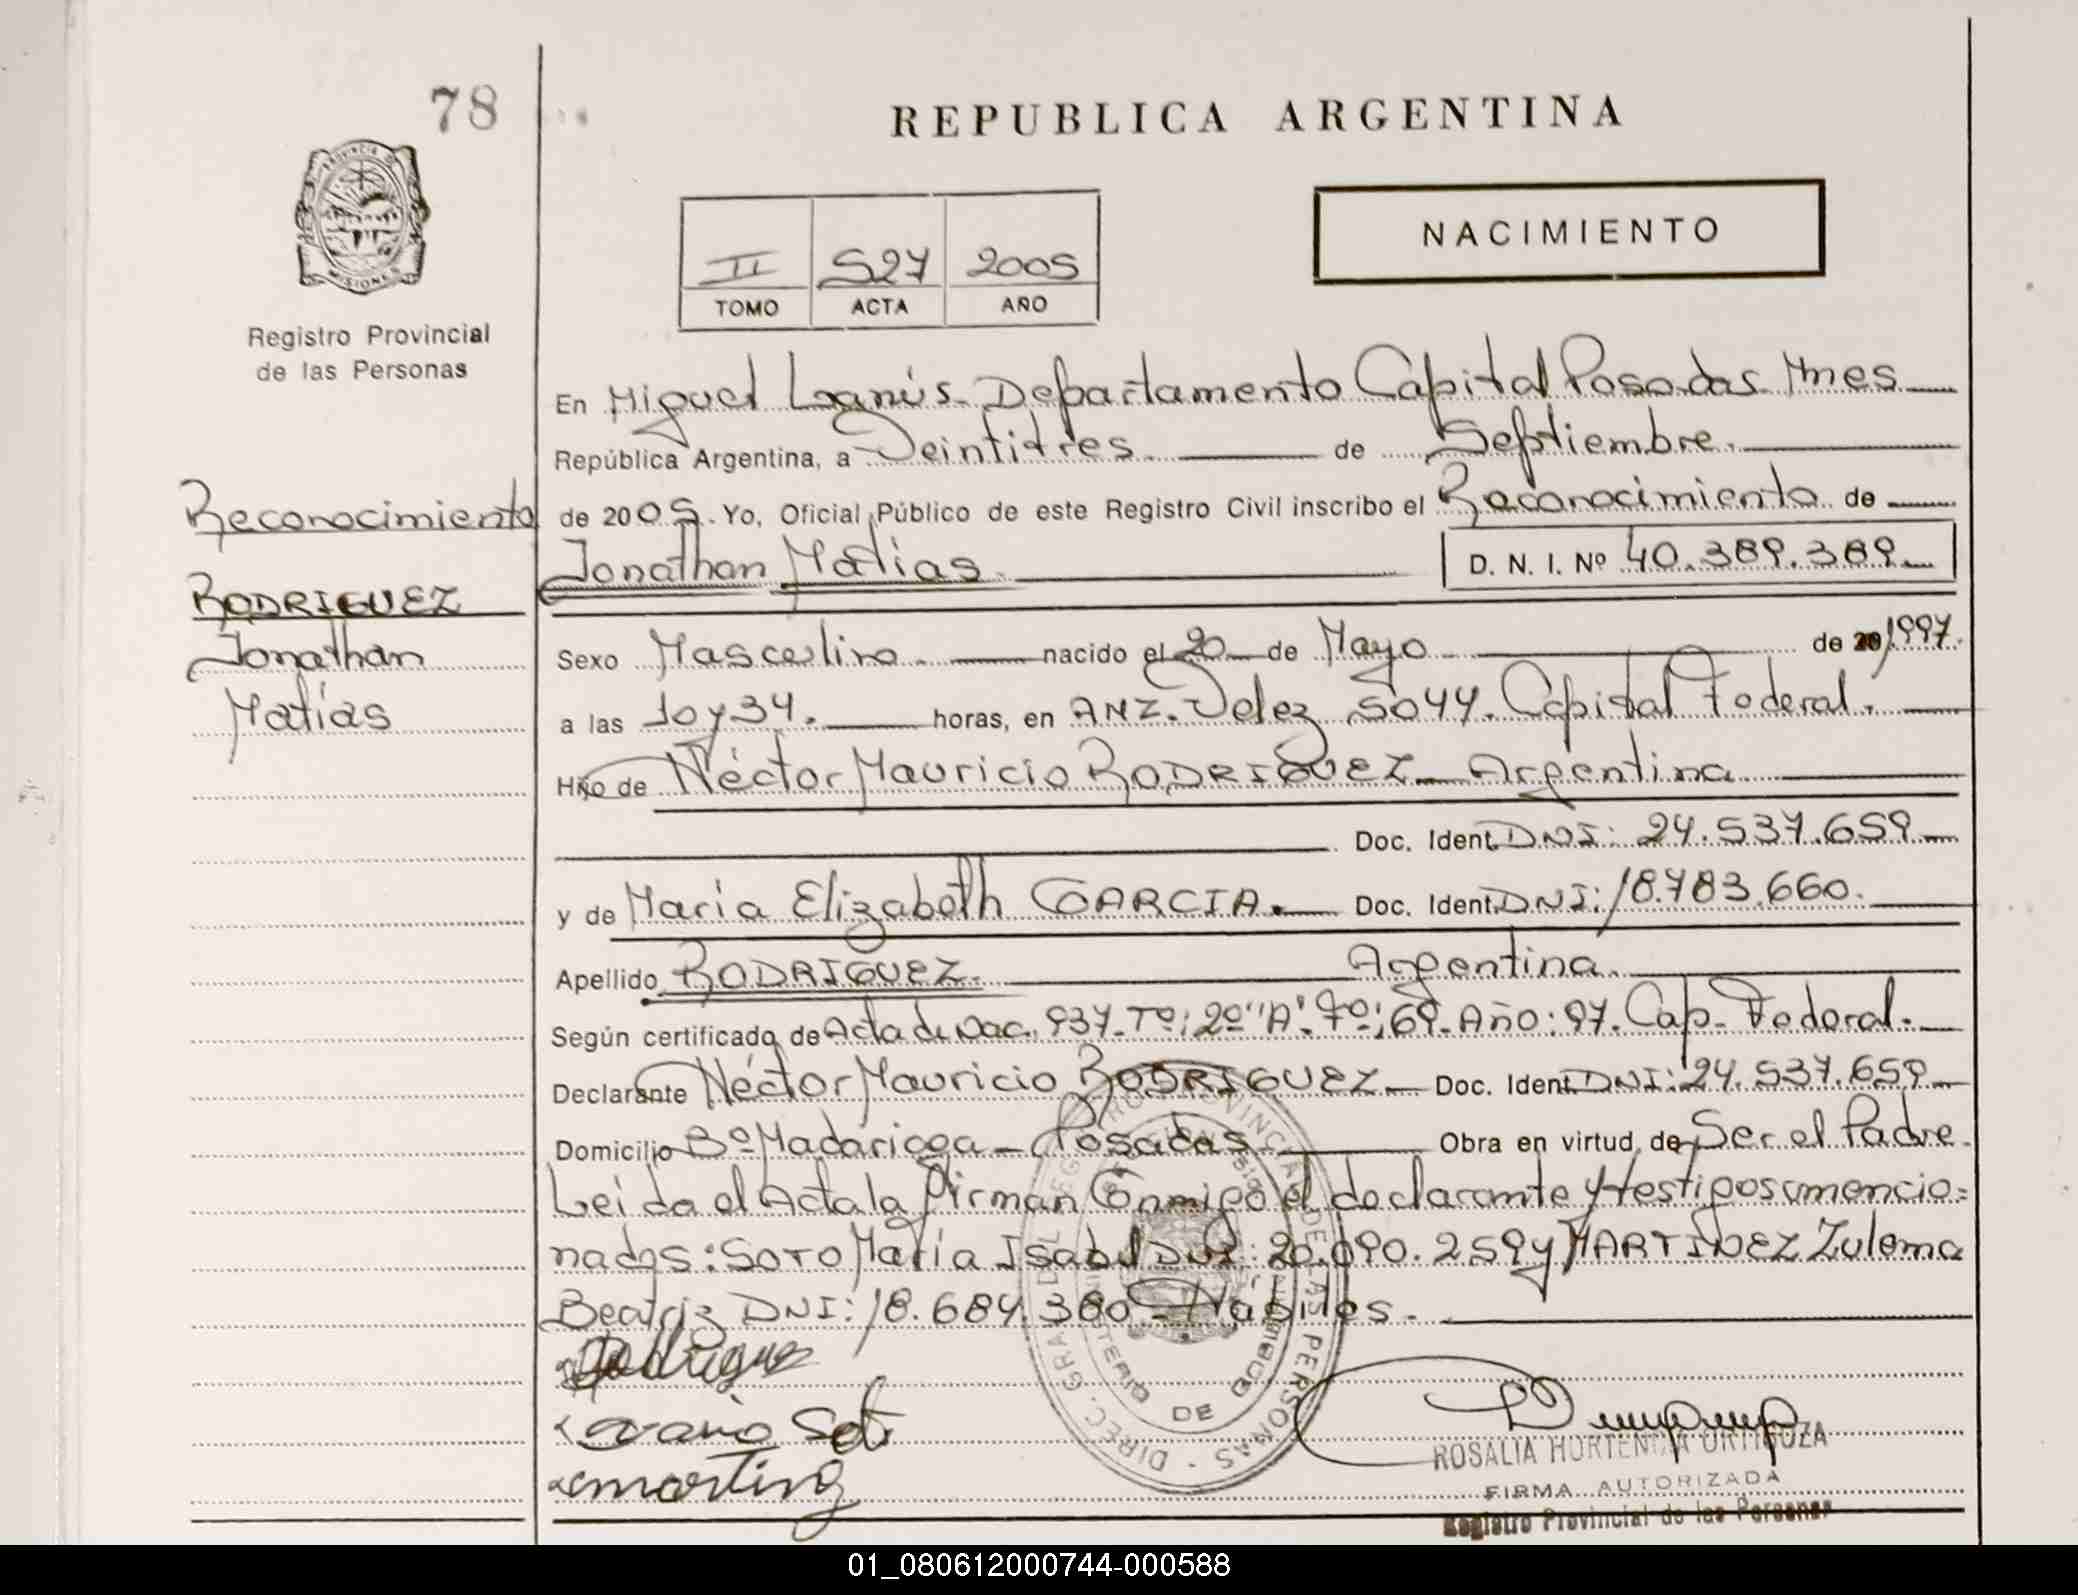 78
REPUBLICA ARGENTINA
PROVINCIA DE
MISIONES
Registro Provincial
de las Personas
II 527 2005
TOMO ACTA AÑO
NACIMIENTO
En Miguel Lanús. Departamento Capital Posadas Mnes
República Argentina, a Veintitres de Septiembre.
Reconocimiento
de 2005. Yo, Oficial Público de este Registro Civil inscribo el Reconocimiento de
Jonathan Matías. D. N. I. Nº 40.389.389
RODRIGUEZ
Jonathan
Matías
Sexo Masculino nacido el 20 de Mayo de 20/1997.
a las 10 y 34. horas, en ANZ. Velez 5044. Capital Federal.
Hijo de Néctor Mauricio RODRIGUEZ Argentina
Doc. Ident. DNI: 24.537.659
y de María Elizabeth GARCIA. Doc. Ident. DNI: 18.783.660.
Apellido RODRIGUEZ. Argentina.
Según certificado de Acta de Nac. 937. Tº: 2º "A". Fº: 69. Año: 97. Cap. Federal.
Declarante Néctor Mauricio RODRIGUEZ Doc. Ident. DNI: 24.537.659
Domicilio Bº Madariaga - Posadas Obra en virtud de Ser el Padre.
Leída el Acta la firman Conmigo el declarante y testigos mencio=
nados: SOTO María Isabel DNI: 20.090.259 y MARTINEZ Zulema
Beatriz DNI: 18.684.380 Hábiles.
Rodriguez
Soto
DIREC. GRAL. DEL REGISTRO PROVINCIAL DE LAS PERSONAS
MINISTERIO DE GOBIERNO
ROSALIA HORTENCIA ORTIGOZA
FIRMA AUTORIZADA
Registro Provincial de las Personas
01_080612000744-000588